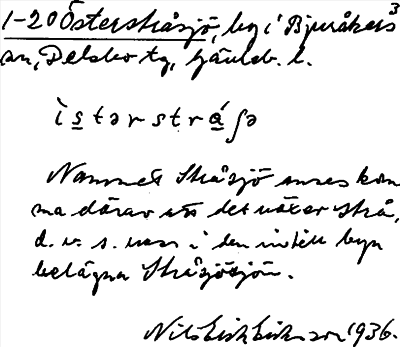 3
1-20 Österstråsjö, by i Bjuråkers
sn, Delsbo tg, Gävleb. l.
ì s̲ t ə r s t r á̲ ʃ ə
Namnet Stråsjö anses kom-
ma därav att det växer strå,
d. v. s. vass i den intill byn
belägna Stråsjösjön.
Nils Erik Eriksson 1936.